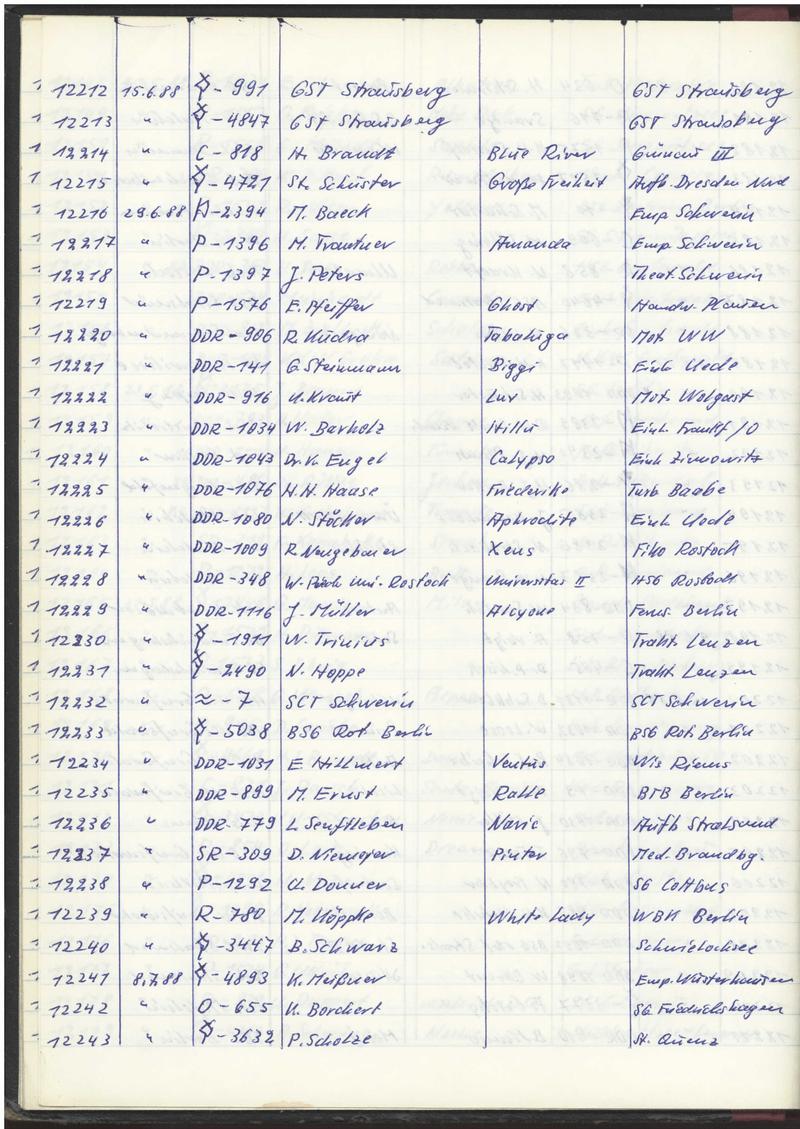 12212 15.6.88 - 991 GST Strausberg GST Strausberg
12213 " - 4847 GST Strausberg GST Strausberg
12214 " C - 818 H. Brandt Blue River Grünau III
12215 " - 4721 St. Schuster Große Freiheit Aufb. Dresden Nord
12216 29.6.88 -2394 M. Baeck Emp. Schwerin
12217 " P - 1396 M. Trautner Amanda Emp. Schwerin
12218 " P - 1397 J. Peters Theat. Schwerin
12219 " P - 1576 E. Pfeiffer Ghost Handw.
12220 " DDR - 906 R. Tabaluga Mot. WW
12221 " DDR - 141 G. Steinmann Einh. Uede
12222 " DDR - 916 Luv Mot. Wolgast
12223 " DDR - 1034 W. Barholz Einh. Frankf/O
12224 " DDR - 1043 Dr. V. Engel Calypso Einh. Zinnowitz
12225 " DDR - 1076 H. H. Hause Friederike Turb. Baabe
12226 " DDR - 1080 N. Stöcker Aphrodite Einh. Uede
12227 " DDR - 1009 R. Neugebauer Xeus Fiko Rostock
12228 " DDR - 348 Uni. Rostock Universitas II HSG Rostock
12229 " DDR - 1116 J. Müller Alcyone Berlin
12230 " - 1911 W. Trinius Trakt. Lenzen
12231 " - 2490 N. Hoppe Trakt. Lenzen
12232 " ≈ - 7 SCT Schwerin SCT Schwerin
12233 " - 5038 BSG Rot. Berlin BSG Rot. Berlin
12234 " DDR - 1031 E. Hillmert Ventus Wis Riems
12235 " DDR - 899 M. Ernst Ralle BTB Berlin
12236 " DDR - 779 L. Senftleben Aufb. Stralsund
12237 " SR - 309 D. Niemejer Pinter Med. Brandbg.
12238 " P - 1292 U. Donner SG Cottbus
12239 " R - 780 M. Köppke White Lady WBK Berlin
12240 " - 3447 B. Schwarz Schwielochsee
12241 8.7.88 - 4893 K. Meißner Emp. Wusterhausen
12242 " O - 655 K. Borchert SG Friedrichshagen
12243 " - 3632 P. Scholze